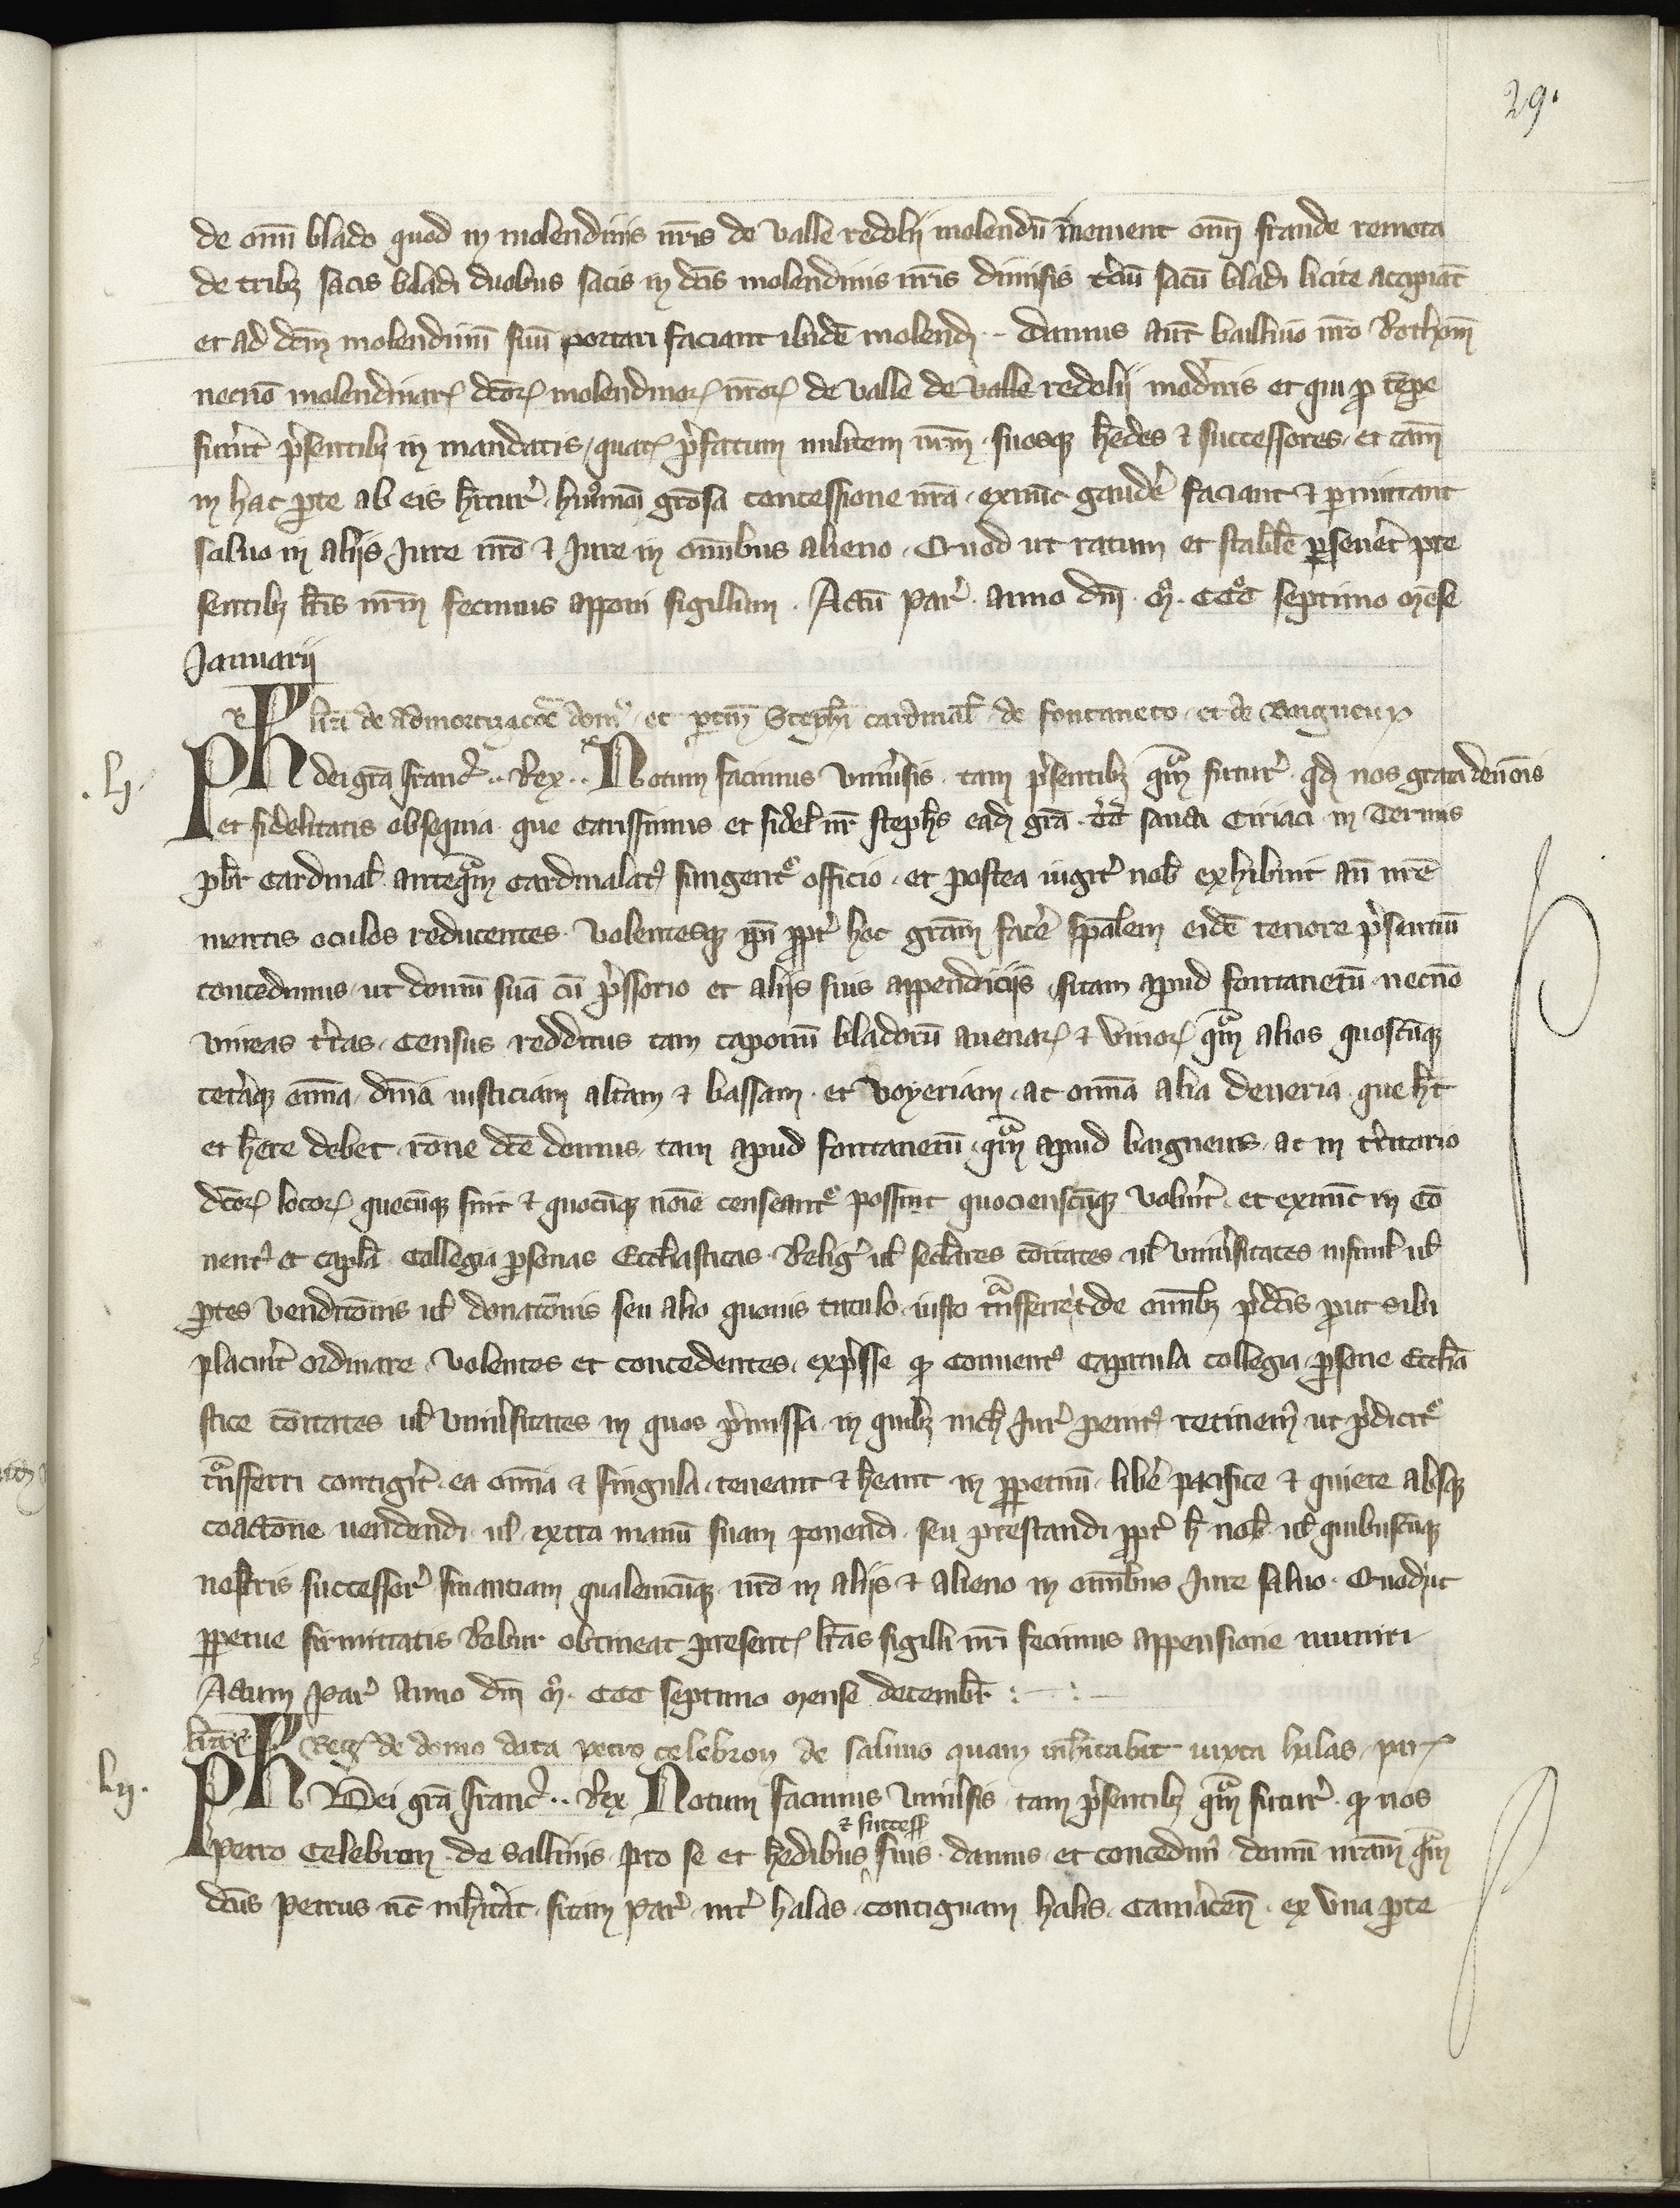 29.
de om̄i blado quod in molendinis nr̄is de valle redolii molend̄ū inenient om̄i fraude remota
de tribȝ sacis bladi duobus sacis in dc̄is molendinis nr̄is dimissis t̓ciū sacū bladi licite accipiāt
et ad dc̄m molendinū suū portari faciant ibidē molend̄ .. Damus aūt baillivo nr̄o Rothom̄
necnō molendinar̄ dc̄oꝝ molendinoꝝ nr̄oꝝ de valle de valle redolii mod̓nis et qui ꝓ tēpe
fu̓int p̓sentibȝ in mandatis, quat̄ p̓fatum militem nr̄m suosqȝ h̄edes ⁊ successores et cām
in hac ꝑte ab eis h̄itur̓ huiusmōi grōsa concessione nr̄a exnūc gaudē̓ faciant ⁊ ꝑmittant
saluo in aliis Jure nr̄o ⁊ Jure in om̄ibus alieno. Quod ut ratum et stabl̄e ꝑseu̓et pre
sentibȝ l̄ris nr̄m fecimus apponi sigillum. Actū par̓. anno dn̄i. mͦ. CCCͦ septimo mēse
Januarii
l̄rā de admortizac̄oe dom᷒ et ꝑtin̄ Steph̄i cardinal̄ de fontaneto et de Baigneux
.lj. Ph dei gr̄a franc̓ .. Rex .. Notum facimus vniu̓sis tam p̓sentibȝ qᵃm futur̓ qd̄ nos grata deuōis
et fidelitatis obsequia que carissimus et fidel̄ nr̄ steph̄s ead̄ gr̄a tt̓ sancti Ciriaci in Termis
pb̄r cardinal̄ anteqᵃm cardinalat᷒ fungeret᷑ officio et postea iugit̓ nob̄ exhibuit an̄ nr̄e
mentis oculos reducentes volentesqȝ ip̄i ꝓpt̓ hoc gr̄am facē̓ sp̄alem eidē tenore p̓sentiū
concedimus ut domū suā cū p̓ssorio et aliis suis appendiciis sitam apud fontanetū necnō
vineas t̓ras census redditus tam caponū bladorū auenaꝝ ⁊ vinoꝝ qᵃm alios quoscūqȝ
cet̓aqȝ om̄ia dn̄ia iusticiam altam ⁊ bassam et voyeriam ac om̄ia alia deueria que h̄t
et h̄ere debet rōne dc̄e domus tam apud fontanetū qᵃm apud baigneus ac in t̓ritorio
dc̄oꝝ locoꝝ quecūqȝ sint ⁊ quocūqȝ nōie censeant᷑ possint quocienscūqȝ volu̓it et exnūc in cō
uent᷒ et capl̄a collegia ꝑsonas Eccl̄iasticas Relig̓ ul̄ secl̄ares cōitates ul̄ vniu̓sitates insimul̄ ul̄
ꝑtes venditōnis ul̄ donatōnis seu alio quouis titulo iusto tᵃnsferre et de om̄ibȝ p̓dc̄is prout sibi
placu̓it ordinare volentes et concedentes exp̓sse qd̄ conuent᷒ capitula collegia ꝑsone Eccl̄ia
stice cōitates ul̄ vniu̓sitates in quos p̓missa in quibȝ nich̄ Jur̓ penit᷒ retinem᷒ ut p̓dicit᷑
tᵃnsferri contig̓it ea om̄ia ⁊ singula teneant ⁊ h̄eant in ꝑpetuū lib̓e pacifice ⁊ quiete absqȝ
coactōne uendendi ul̄ extra manū suam ponendi seu prestandi ꝓpt̓ h̄ nob̄ ul̄ quibuscūqȝ
nostris successor̓ financiam qualemcūqȝ nr̄o in aliis ⁊ alieno in om̄ibus Jure saluo. Quod ut
ꝑpetue firmitatis Robur obtineat present̄ l̄ras sigilli nr̄i fecimus appensione muniri
Actum par̓ anno dn̄i mͦ. CCC septimo mense decembr̄ :
l̄ra Reg̓ de domo data petro celebron de salinis quam inh̄itabit iuxta halas par̄
lij. Ph Dei gr̄a franc̓ .. Rex Notum facimus vniu̓sis tam p̓sentibȝ qᵃm futur̓ qd̄ nos
⁊ success̄
petro Celebron de Sallinis pro se et h̄edibus suis damus et concedim᷒ domū nr̄am qᵃm
dc̄us petrus nc̄ inh̄itat sitam par̓ int̓ halas contiguam halis Cam̓acen̄ ex vna ꝑte